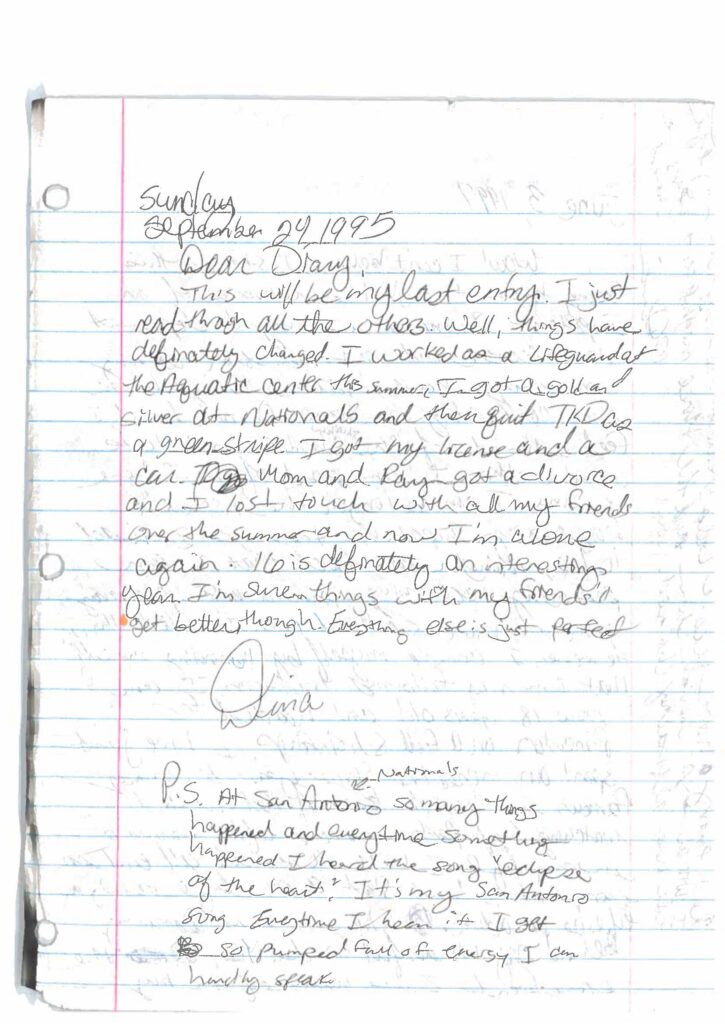 Sunday
September 24, 1995
Dear Diary,
This will be my last entry. I just
read throgh all the others. Well, things have
definately changed. I worked as a Lifeguard at
the Aquatic center this summer, I got a gold and
silver at Nationals and then quit TKD as
a green stripe. I got my license and a
car. Mom and Ray got a divorce
and I lost touch with all my friends
over the summer and now I'm alone
again. 16 is definately an interesting
year. I'm sure things with my friends'll
get better, though. Everything else is just perfect
Dina
Nationals
P.S. At San Antonio so many things
happened and everytime something
happened I heard the song "eclipse
of the heart". It's my San Antonio
song Everytime I hear it I get
so pumped full of energy I can
hardly speak